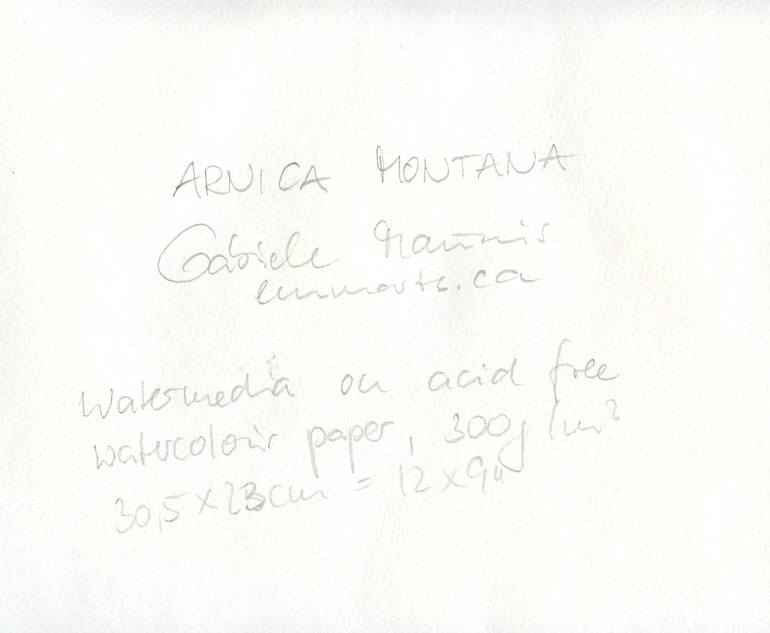 ARNICA MONTANA
Gabriele
emmarts.ca
Watermedia on acid free
watercolour paper, 300g/m²
30,5 x 23cm = 12 x 9"